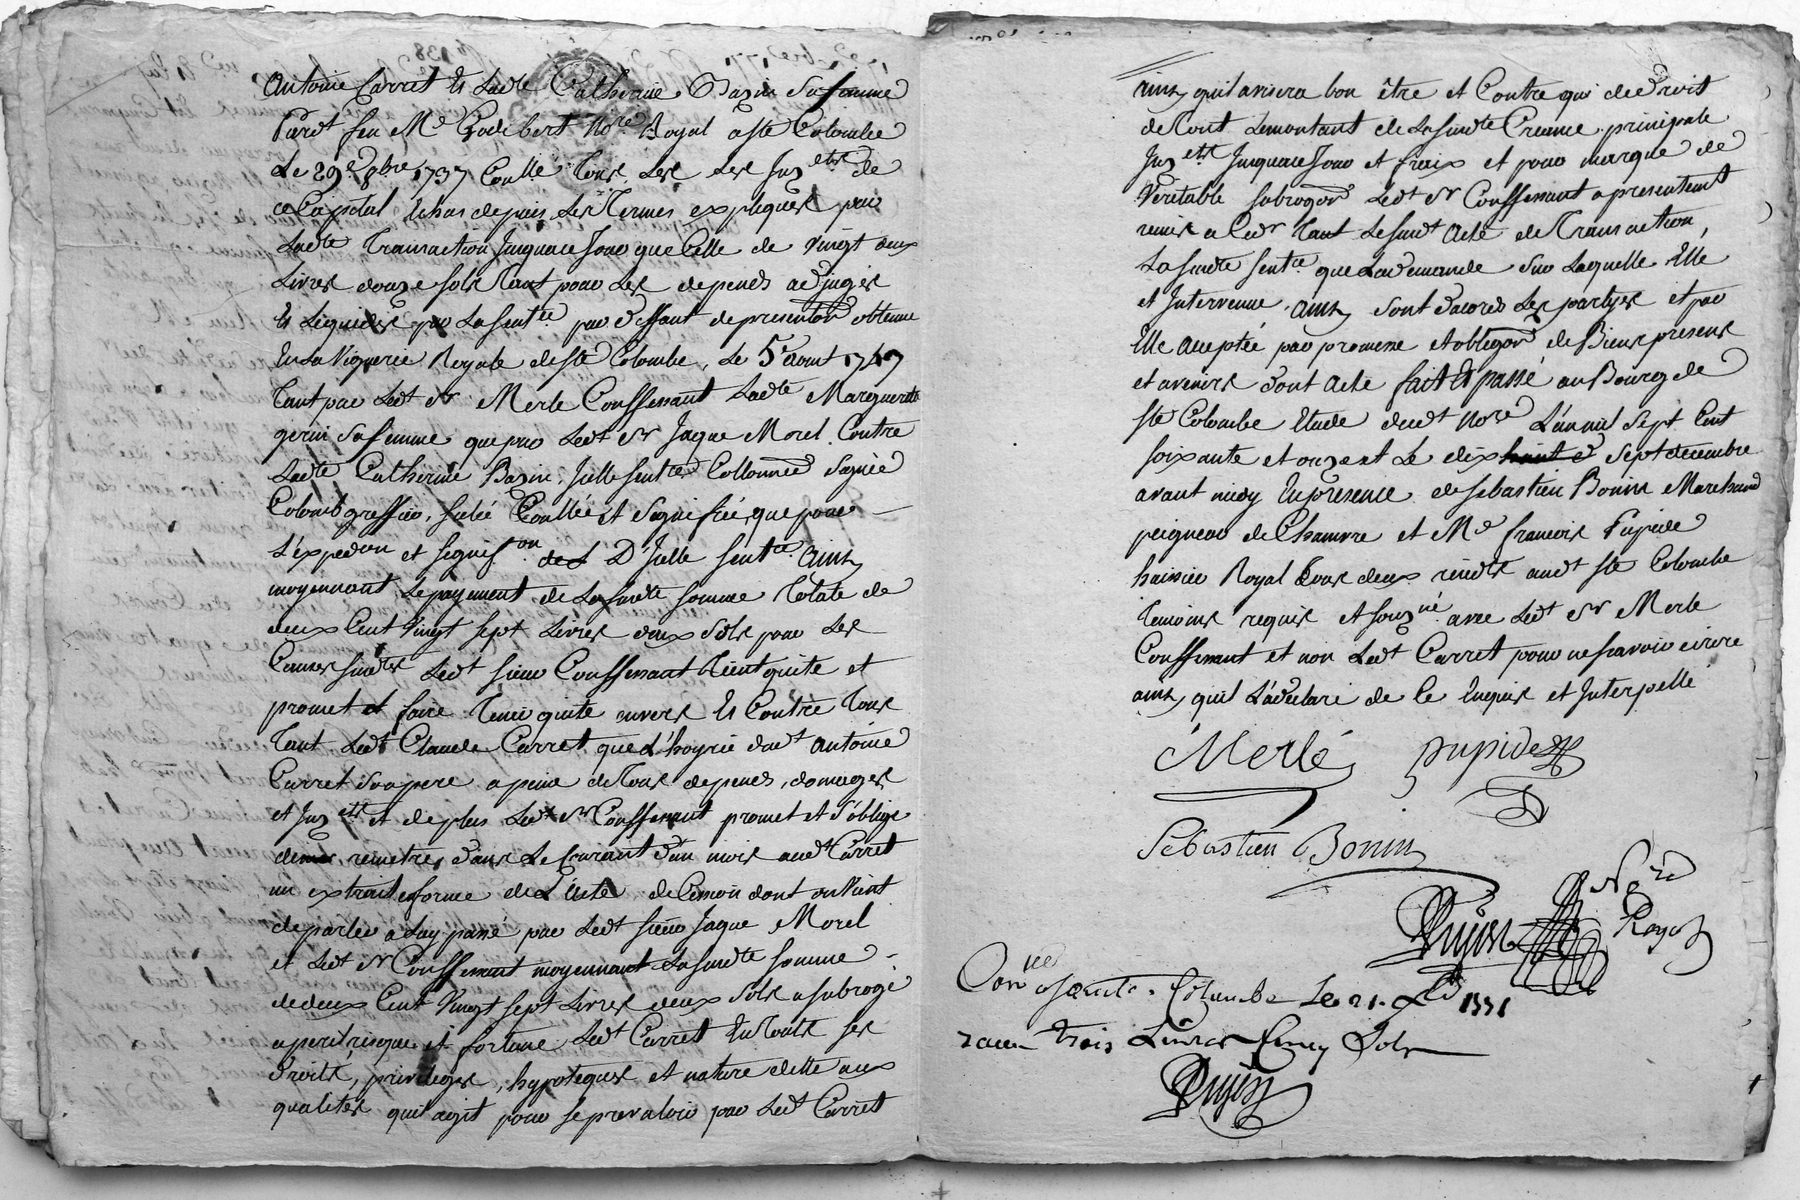 antoine Carret et ladte Catherine Bazin sa femme
Pardt feu Me Godibert Nore Royal a ste Colombe
Le 29e 8bre 1737 Conlle tous Les Les Jnetts de
ce Capital Echus depuis Les Termes expliques par
Ladte Transaction Jusquace Jour que Celle de vingt deux
Livres douze sols tant pour Les depends adjuges
et Liquides par La Sentce par deffaut de presentaon obtenue
En la Viguerie Royale de ste Colombe, Le 5e aout 1747
tant par Ledt Sr Merle Conffessant Ladte Marguerite
gerin sa femme que par Ledt Sr Jaque Morel Contre
Ladte Catherine Bazin, Jcelle Sentce Collonnée Signée
Colomb greffier, sselé Conllée et Signifiée, que pour
L'expedon et signifon de L D'Jcelle Sentce ainsy
moyennant Le payement de La susdte somme totale de
deux Cent vingt sept Livres deux sols pour Les
Causes susdtes Ledt sieur Conffessant tient quite et
promet et faire tenir quite envers Et Contre tous
tant Ledt Claude Carret que L'hoyrie dudt antoine
Carret son pere a peine de tous depends, domages
et Jnetts et de plus Ledt Sr Conffessant promet et s'oblige
de remettre dans Le Courant d'un mois audt Carret
un extrait en forme de L'acte de Cession dont on vient
de parler a Luy passé par Ledt sieur Jaque Morel
et Ledt Sr Conffessant moyennant La susdte somme
de deux Cent vingt sept Livres deux sols a subrogé
a peril risque et fortune Ledt Carret En touts ses
droits, privileges, hypoteques et nature dette aux
qualites quil agit pour se prevaloir par Ledt Carret
ainsy quil avisera bon être et Contre qui de Droit
de tout Le montant de La susdte Creance principale
Jnetts Jusquace Jour et fraix et pour marque de
Veritable subrogaon Ledt Sr Conffessant a presentemt
remis a Ced. tant Le susdt Acte de Transaction,
La susdte Sentce que La demande sur Laquelle Elle
et Intervenue, ainsy sont d'acord Les partyes et par
Elle acceptée par promesse et obligaon de Biens presens
et avenirs dont Acte fait Et passé au Bourg de
ste Colombe Etude dudt Nore L'an mil sept Cent
soixante et onze et Le dix huit e sept decembre
avant midy En presence de Sebastien Bonin Marchand
peigneur de Chanvre et Me francois Pupide
huissier Royal tous deux residts audt ste Colombe
temoins requis et souzné avec Ledt Sr Merle
Conffessant et non Ledt Carret pour ne savoir ecrire
ainsy quil L'a declaré de Ce Enquis et Interpellé
Merle pupide
Sebastien Bonin
Nore
Royal
Conllé a sainte Colombe Le 21 Xbre 1771
recu trois Livres Cinq sols